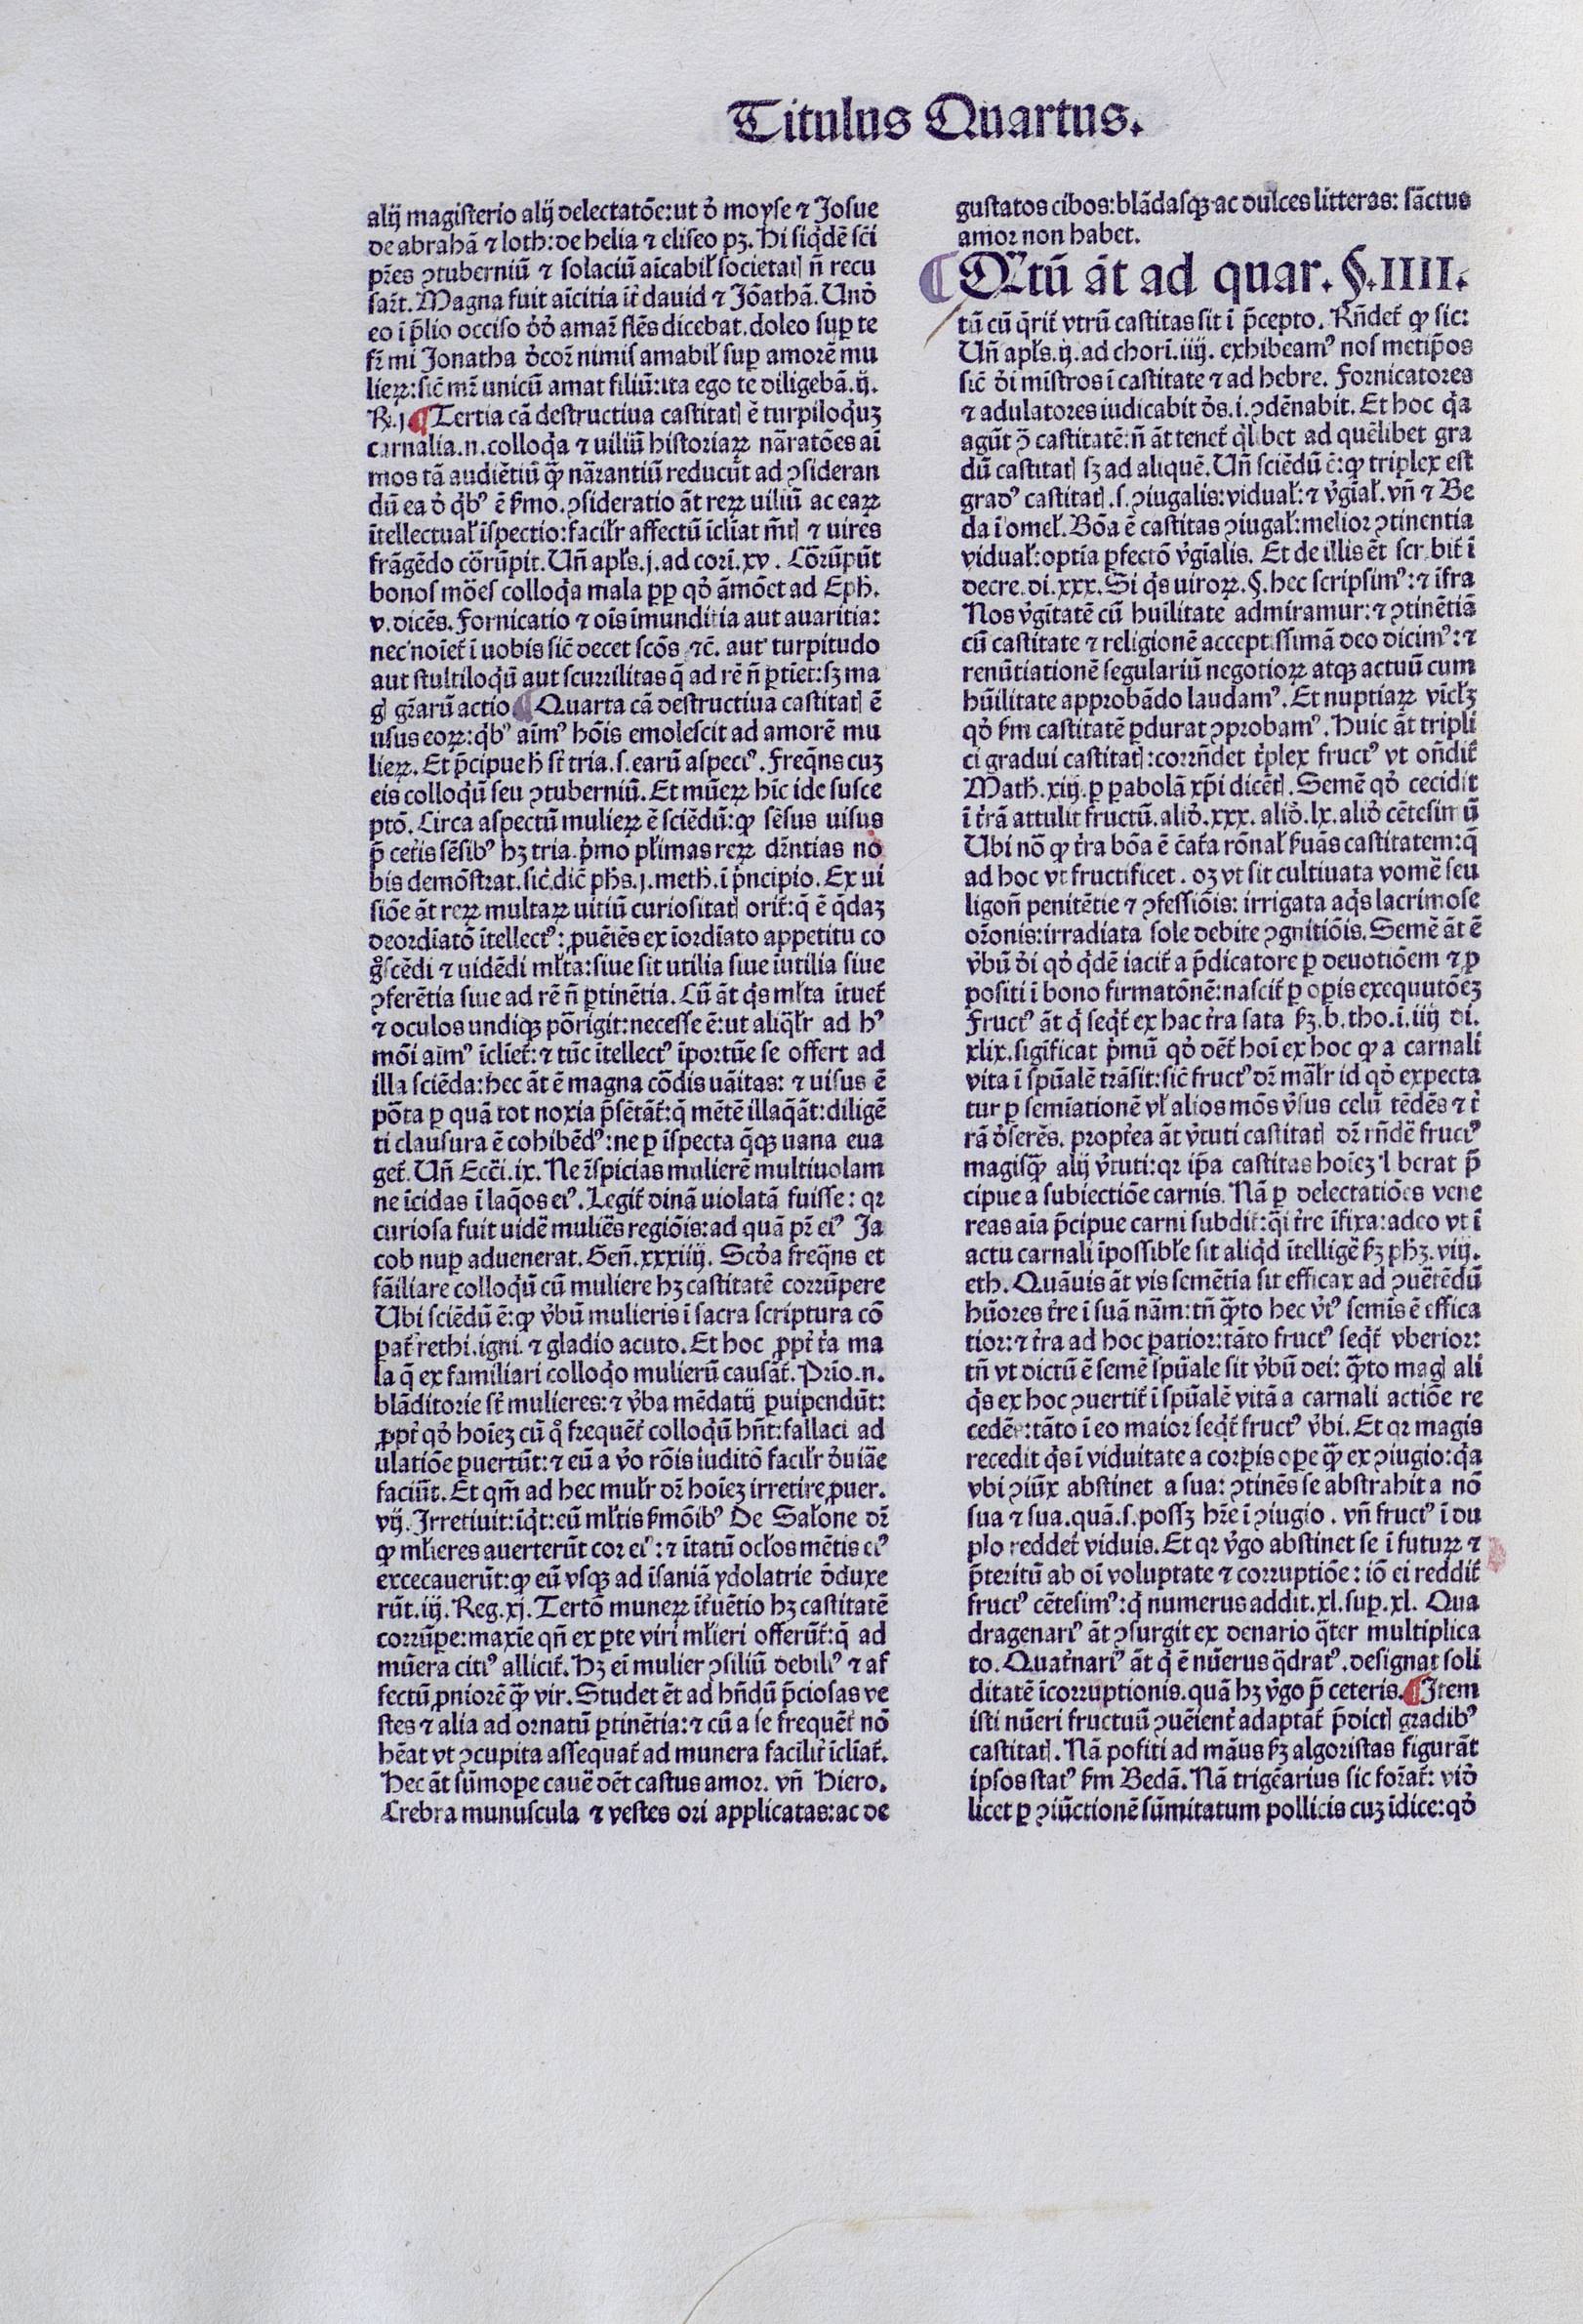 Titulus Quartus.
alij magisterio alij delectatōe: ut ð moyse ⁊ Josue
de abrahā ⁊ loth: de helia ⁊ eliseo pꝫ. Hi siqͥdē sc̄i
pr̄es ꝯtuberniū ⁊ solaciū aīcabil̵ societatꝭ n̄ recu
sar̄t. Magna fuit aīcitia it̄ dauid ⁊ Jōathā. Unð
eo ī p̄lio occiso ðð amar̄ flēs dicebat. doleo suꝑ te
fr̄ mi Jonatha ðcor̄ nimis amabil̵ suꝑ amorē mu
lieꝝ: sic̄ mr̄ unicū amat filiū: ita ego te diligebā. ij.
R. j. ¶ Tertia cā destructiua castitatꝭ ē turpiloqͥuꝫ
carnalia. n. colloqͥa ⁊ uiliū historiaꝝ nārratōes ai
mos tā audiētiū qͣ̄ nārrantiū reducūt ad ꝯsideran
dū ea ð qͥbꝰ ē ẜmo. ꝯsideratio āt reꝝ uiliū ac eaꝝ
ītellectual̵ īspectio: facil̵r affectū īclīat m̄tꝭ ⁊ uires
frāgēdo cōrrūpit. Un̄ apl̵s. j. ad corī. xv. Cōrrūpūt
bonos mōes colloqͥa mala ꝓꝑ qð āmōet ad Eph̄.
v. dicēs. Fornicatio ⁊ oīs īmunditia aut auaritia:
nec noīet̄ ī uobis sic̄ decet sc̄os ⁊c̄. aut turpitudo
aut stultiloqͥū aut scurrilitas q̄ ad rē n̄ ꝑtīet: sꝫ ma
gꝭ gr̄arū actio ¶ Quarta cā destructiua castitatꝭ ē
usus eoꝝ: qͥbꝰ aīmꝰ hōis emolescit ad amorē mu
lieꝝ. Et p̄cipue h̄ st̄ tria. s. earū aspectꝰ. Freqͣns cuꝫ
eis colloqͥū seu ꝯtuberniū. Et mūeꝝ hīc īde susce
ptō. Circa aspectū mulieꝝ ē sciēdū: ꝙ sēsus uisus
p̄ cet̄is sēsibꝰ hꝫ tria. pͥmo pl̵imas reꝝ dr̄ntias no
bis demōstrat. sic̄. dic̄ ph̄s. j. meth̄. ī pͥncipio. Ex ui
siōe āt reꝝ multaꝝ uitiū curiositatꝭ orit̄: q̄ ē q̄daꝫ
deordīatō ītellectꝰ: ꝓuēiēs ex īordīato appetitu co
gͦscēdi ⁊ uidēdi ml̵ta: siue sit utilia siue īutilia siue
ꝯferētia siue ad rē n̄ ꝑtinētia. Cū āt qͥs ml̵ta ītuet̄
⁊ oculos undiqꝫ pōrrigit: necesse ē: ut aliqͣl̵r ad hꝰ
mōi aīmꝰ īclīet̄: ⁊ tūc ītellectꝰ īportūe se offert ad
illa sciēda: hec āt ē magna cōdis uāitas: ⁊ uisus ē
pōrta ꝑ quā tot noxia p̄sētāt̄: q̄ mētē illaqͣāt: diligē
ti clausura ē cohibēdꝰ: ne ꝑ īspecta q̄qꝫ uana eua
get̄. Un̄ Ecc̄i. ix. Ne īspicias mulierē multiuolam
ne īcidas ī laqͣos eiꝰ. Legit̄ dinā uiolatā fuisse: qr
curiosa fuit uidē muliēs regiōis: ad quā pr̄ eiꝰ Ja
cob nuꝑ aduenerat. Gen̄. xxxiiij. Scðа freqͣns et
fāiliare colloqͥū cū muliere hꝫ castitatē corrūpere
Ubi sciēdū ē: ꝙ v̄bū mulieris ī sacra scriptura cō
pat̄ rethi. igni. ⁊ gladio acuto. Et hoc ꝓpt̄ t̄a ma
la q̄ ex familiari colloqͥo mulierū causāt̄. Prīo. n.
blāditorie st̄ mulieres: ⁊ v̄ba mēdatij ꝑuipendūt:
ꝓpt̄ qð hoīeꝫ cū qͦ frequēt̄ colloqͥū hn̄t: fallaci ad
ulatiōe ꝑuertūt: ⁊ eū a v̄o rōis iuditō facil̵r ðuiāe
faciūt. Et qm̄ ad hec mul̵r dr̄ hoīeꝫ irretire ꝓuer.
vij. Irretiuit: īqͥt: eū ml̵tis ẜmōibꝰ De Sal̵one dr̄
ꝙ ml̵ieres auerterūt cor eiꝰ: ⁊ ītatū ocl̵os mētis eiꝰ
excecauerūt: ꝙ eū vsqꝫ ad īsaniā ydolatrie ðduxe
rūt. iij. Reg. xj. Tertō muneꝝ īt̄uētio hꝫ castitatē
corrūpe: maxīe qn̄ ex ꝑte viri ml̵ieri offerūt̄: q̄ ad
mūera citiꝰ allicit̄. Hꝫ eī mulier ꝯsiliū debilꝰ ⁊ af
fectū ꝓniorē qͣ̄ vir. Studet ēt ad hn̄dū p̄ciosas ve
stes ⁊ alia ad ornatū ꝑtinētia: ⁊ cū a se frequēt̄ nō
hēat vt ꝯcupita assequat̄ ad munera facilit̄ īclīat̄.
Hec āt sūmoꝑe cauē dēt castus amor. vn̄ Hiero.
Crebra munuscula ⁊ vestes ori applicatas: ac de
gustatos cibos: blādasqꝫ ac dulces litteras: sāctus
amor non habet.
¶ Qꝰtū āt ad quar. §. IIII.
tū cū qͥrit̄ vtrū castitas sit ī p̄cepto. Rn̄det̄ ꝙ sic:
Un̄ apl̵s. ij. ad chorī. iiij. exhibeamꝰ nos metip̄os
sic̄ ði mīstros ī castitate ⁊ ad hebre. Fornicatores
⁊ adulatores iudicabit ðs. i. ꝯdēnabit. Et hoc qͥa
agūt ꝯ̄ castitatē: n̄ āt tenet̄ qͥlibet ad quēlibet gra
dū castitatꝭ sꝫ ad aliquē. Un̄ sciēdū ē: ꝙ triplex est
gradꝰ castitatꝭ. s. ꝯiugalis: vidual̵: ⁊ v̄gīal̵. vn̄ ⁊ Be
da ī omel̵. Bōa ē castitas ꝯiugal̵: melior ꝯtinentia
vidual̵: optīa ꝑfectō v̄gīalis. Et de illis ēt scribit̄ ī
decre. di. xxx. Si qͥs uiroꝝ. §. hec scripsimꝰ: ⁊ īfra
Nos v̄gītatē cū huīlitate admiramur: ⁊ ꝯtinētiā
cū castitate ⁊ religionē acceptissimā deo dicimꝰ: ⁊
renūtiationē segulariū negotioꝝ atqꝫ actuū cum
hūilitate approbādo laudamꝰ. Et nuptiaꝝ vicl̵ꝫ
qð ẜm castitatē ꝑdurat ꝯprobamꝰ. Huic āt tripli
ci gradui castitatꝭ: corrn̄det tͥplex fructꝰ vt on̄dit̄
Math̄. xiij. ꝑ ꝑabolā xp̄i dicētꝭ. Semē qð cecidit
ī t̄rā attulit fructū. alið. xxx. alið. lx. alið cētesimū
Ubi nō ꝙ t̄ra bōa ē c̄at̄a rōnal̵ ẜuās castitatem: q̄
ad hoc vt fructificet. oꝫ vt sit cultiuata vomē seu
ligon̄ penitētie ⁊ ꝯfessiōis: irrigata aqͥs lacrimose
or̄onis: irradiata sole debite ꝯgnitiōis. Semē āt ē
v̄bū ði qð qͥdē iacit̄ a p̄dicatore ꝑ deuotiōem ⁊ ꝓ
positi ī bono firmatōnē: nascit̄ ꝑ oꝑis exequutōeꝫ
Fructꝰ āt qͥ seqͥt̄ ex hac t̄ra sata ẜꝫ. b. tho. ī. iiij di.
xlix. sigīficat pͥmū qð dēt̄ hoī ex hoc ꝙ a carnali
vita ī spūalē trāsit: sic̄ fructꝰ dr̄ māl̵r id qð expecta
tur ꝑ semīationē vl̵ alios mōs v̄sus celū tēdēs ⁊ t̄
rā ðserēs. propt̄ea āt v̄tuti castitatꝭ dr̄ rn̄dē fructꝰ
magisqͣ̄ alij v̄tuti: qr ip̄a castitas hoīeꝫ liberat p̄
cipue a subiectiōe carnis. Nā ꝑ delectatiōes vene
reas aīa p̄cipue carni subdit̄: q̄i t̄re īfixa: adeo vt ī
actu carnali īpossibl̵e sit aliqͥd ītelligē ẜꝫ ph̄ꝫ. viij.
eth. Quāuis āt vis semētīa sit efficax ad ꝯuētēdū
hūores t̄re ī suā nām: tn̄ qͣ̄to hec v̄tꝰ semīs ē effica
tior: ⁊ t̄ra ad hoc patior: tāto fructꝰ seqͥt̄ vberior:
tn̄ vt dictū ē semē spūale sit v̄bū dei: qͣ̄to magꝭ ali
qͥs ex hoc ꝯuertit̄ ī spūalē vitā a carnali actiōe re
cedēs: tāto ī eo maior seqͥt̄ fructꝰ v̄bi. Et qr magis
recedit qͥs ī viduitate a corꝑis oꝑe qͣ̄ ex ꝯiugio: qͥa
vbi ꝯiūx abstinet a sua: ꝯtinēs se abstrahit a nō
sua ⁊ sua. quā. s. possꝫ hr̄e ī ꝯiugio. vn̄ fructꝰ ī du
plo reddet̄ viduis. Et qr v̄go abstinet se ī futuꝝ ⁊
p̄teritū ab oī voluptate ⁊ corruptiōe: iō ei reddit̄
fructꝰ cētesimꝰ: qͥ numerus addit. xl. suꝑ. xl. Qua
dragenariꝰ āt ꝯsurgit ex denario qͣter multiplica
to. Quat̄nariꝰ āt qͥ ē nūerus qͣdratꝰ. designat soli
ditatē īcorruptionis. quā hꝫ v̄go p̄ ceteris. ¶ Item
isti nūeri fructuū ꝯuēient̄ adaptāt̄ p̄dictꝭ gradibꝰ
castitatꝭ. Nā positi ad māus ẜꝫ algoristas figurāt
ipsos statꝰ ẜm Bedā. Nā trigēarius sic for̄at̄: við
licet ꝑ ꝯiūctionē sūmitatum pollicis cuꝫ īdice: qð